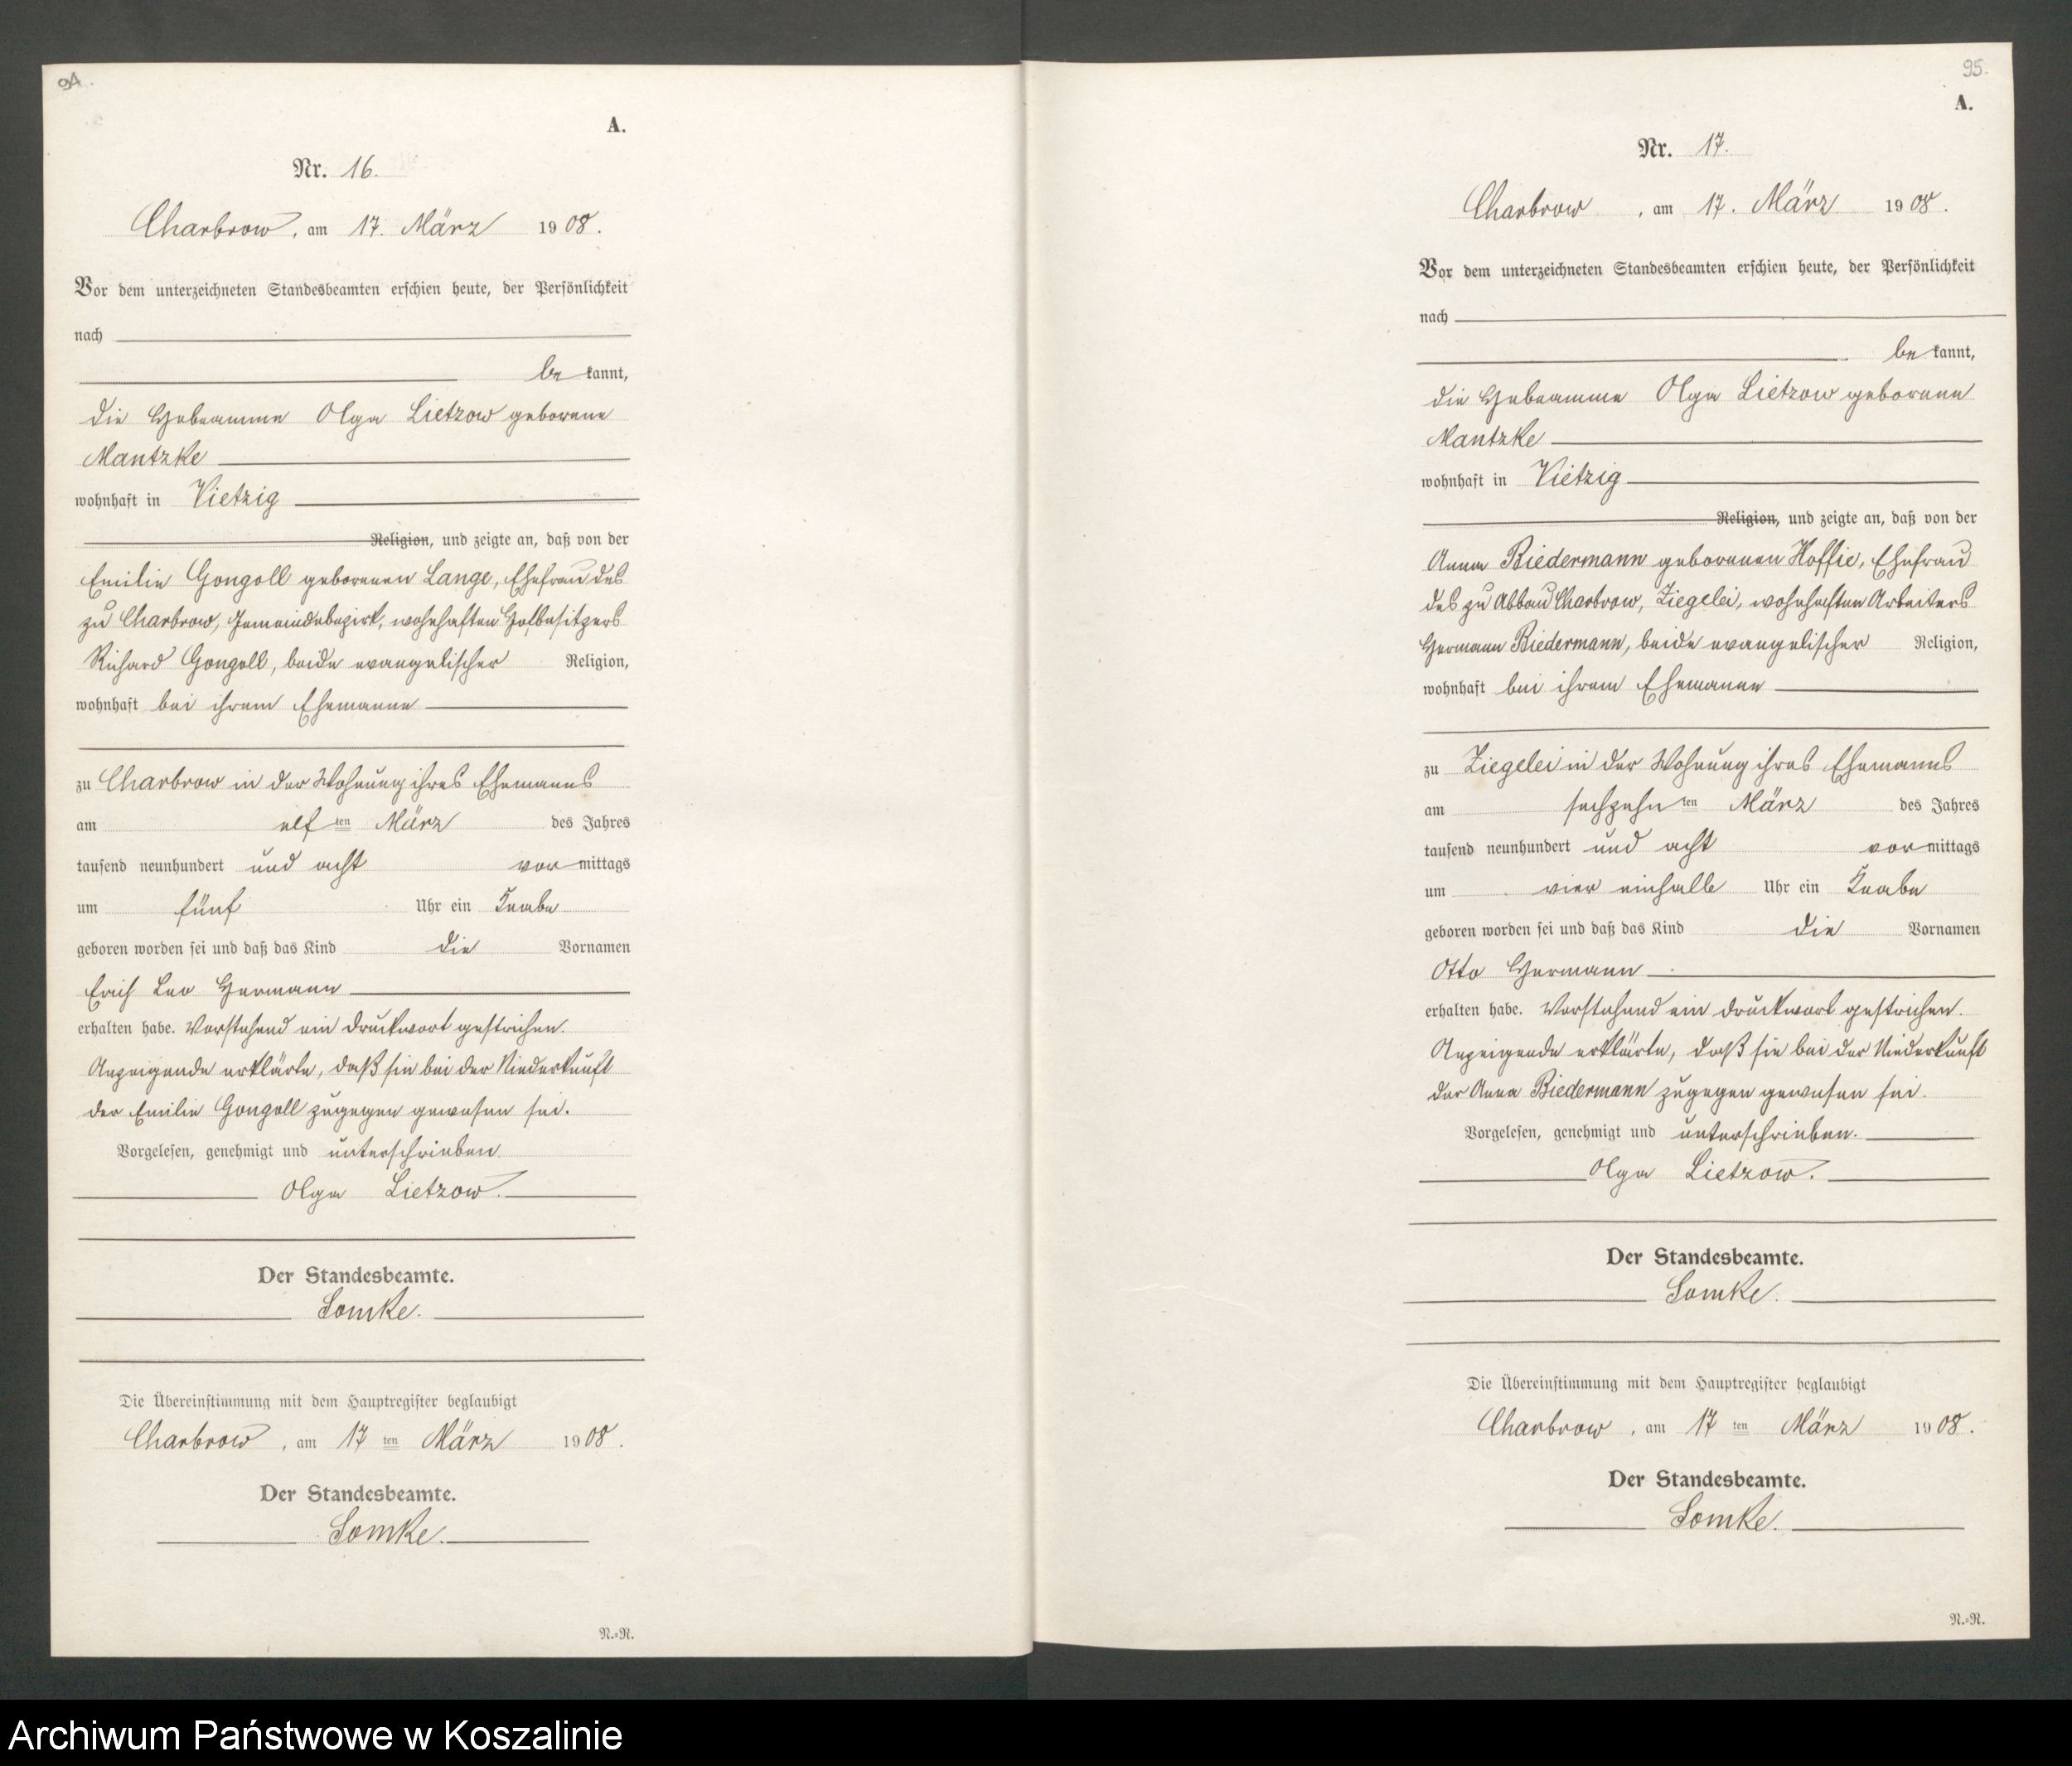 94.
A.
Nr. 16.
Charbrow, am 17. März 1908.
Vor dem unterzeichneten Standesbeamten erschien heute, der Persönlichkeit
nach
bekannt,
die Hebeamme Olga Lietzow geborene
Mantzke
wohnhaft in Vietzig
Religion, und zeigte an, daß von der
Emilie Gongoll geborenen Lange, Ehefrau des
zu Charbrow, Gemeindebezirk, wohnhaften Hofbesitzers
Richard Gongoll, beide evangelischer Religion,
wohnhaft bei ihrem Ehemanne
zu Charbrow in der Wohnung ihres Ehemanns
am elf ten März des Jahres
tausend neunhundert und acht vormittags
um fünf Uhr ein Knabe
geboren worden sei und daß das Kind die Vornamen
Erich Leo Hermann
erhalten habe. Vorstehend ein Druckwort gestrichen.
Anzeigende erklärte, daß sie bei der Niederkunft
der Emilie Gongoll zugegen gewesen sei.
Vorgelesen, genehmigt und unterschrieben
Olga Lietzow.
Der Standesbeamte.
Lomke.
Die Übereinstimmung mit dem Hauptregister beglaubigt
Charbrow, am 17 ten März 1908.
Der Standesbeamte.
Lomke.
N.=R.
95.
A.
Nr. 17.
Charbrow, am 17. März 1908.
Vor dem unterzeichneten Standesbeamten erschien heute, der Persönlichkeit
nach
bekannt,
die Hebeamme Olga Lietzow geborene
Mantzke
wohnhaft in Vietzig
Religion, und zeigte an, daß von der
Anna Biedermann geborenen Hoffie, Ehefrau
des zu Abbau Charbrow, Ziegelei, wohnhaften Arbeiters
Hermann Biedermann, beide evangelischer Religion,
wohnhaft bei ihrem Ehemanne
zu Ziegelei in der Wohnung ihres Ehemanns
am sechzehn ten März des Jahres
tausend neunhundert und acht vormittags
um vier einhalb Uhr ein Knabe
geboren worden sei und daß das Kind die Vornamen
Otto Hermann
erhalten habe. Vorstehend ein Druckwort gestrichen.
Anzeigende erklärte, daß sie bei der Niederkunft
der Anna Biedermann zugegen gewesen sei.
Vorgelesen, genehmigt und unterschrieben.
Olga Lietzow.
Der Standesbeamte.
Lomke.
Die Übereinstimmung mit dem Hauptregister beglaubigt
Charbrow, am 17 ten März 1908.
Der Standesbeamte.
Lomke.
N.=R.
Archiwum Państwowe w Koszalinie